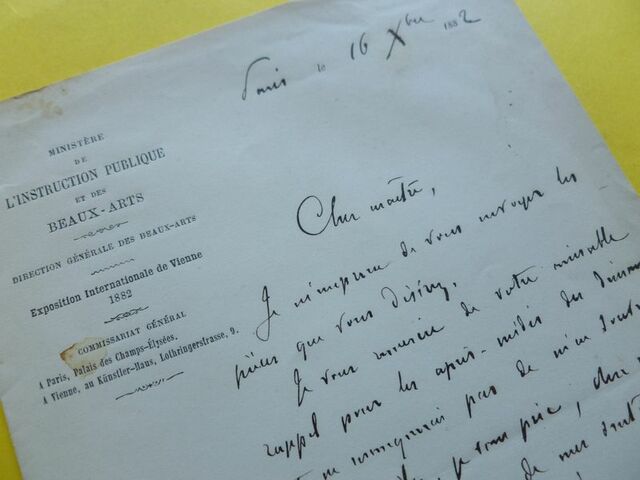 Paris le 16 Xbre 1882
MINISTÈRE
DE
L'INSTRUCTION PUBLIQUE
ET DES
BEAUX-ARTS
DIRECTION GÉNÉRALE DES BEAUX-ARTS
Exposition Internationale de Vienne
1882
COMMISSARIAT GÉNÉRAL
A Paris, Palais des Champs-Élysées.
A Vienne, au Künstler-Haus, Lothringerstrasse, 9.
Cher maître,
Je m'empresse de vous envoyer les
pièces que vous désirez.
Je vous remercie de votre aimable
rappel pour les après-midis des
manquerai pas de m'en
je vous prie, cher
de mes